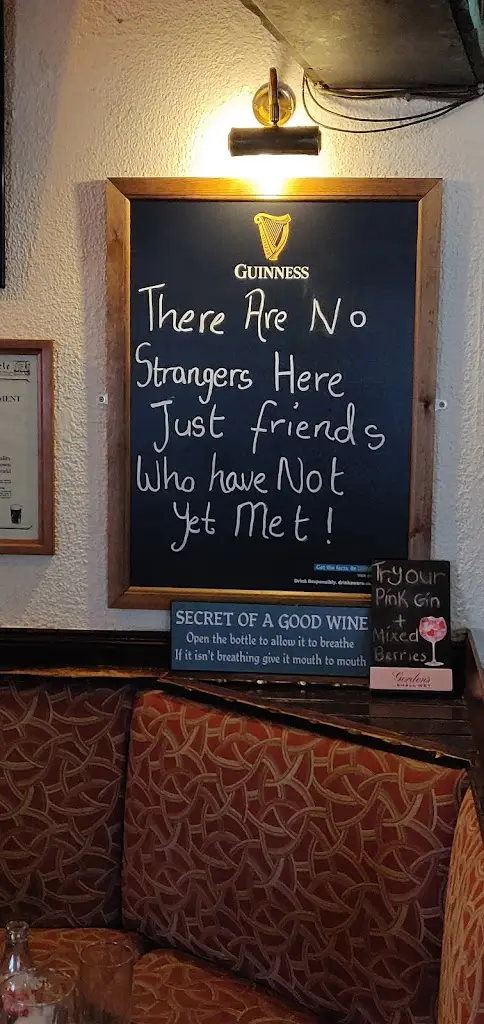 GUINNESS
There Are No
Strangers Here
Just friends
Who have Not
Yet Met!
Get the facts. Be
Drink Responsibly.
SECRET OF A GOOD WINE
Open the bottle to allow it to breathe
If it isn't breathing give it mouth to mouth
Try your
Pink Gin
+
Mixed
Berries
Gordon's
MENT